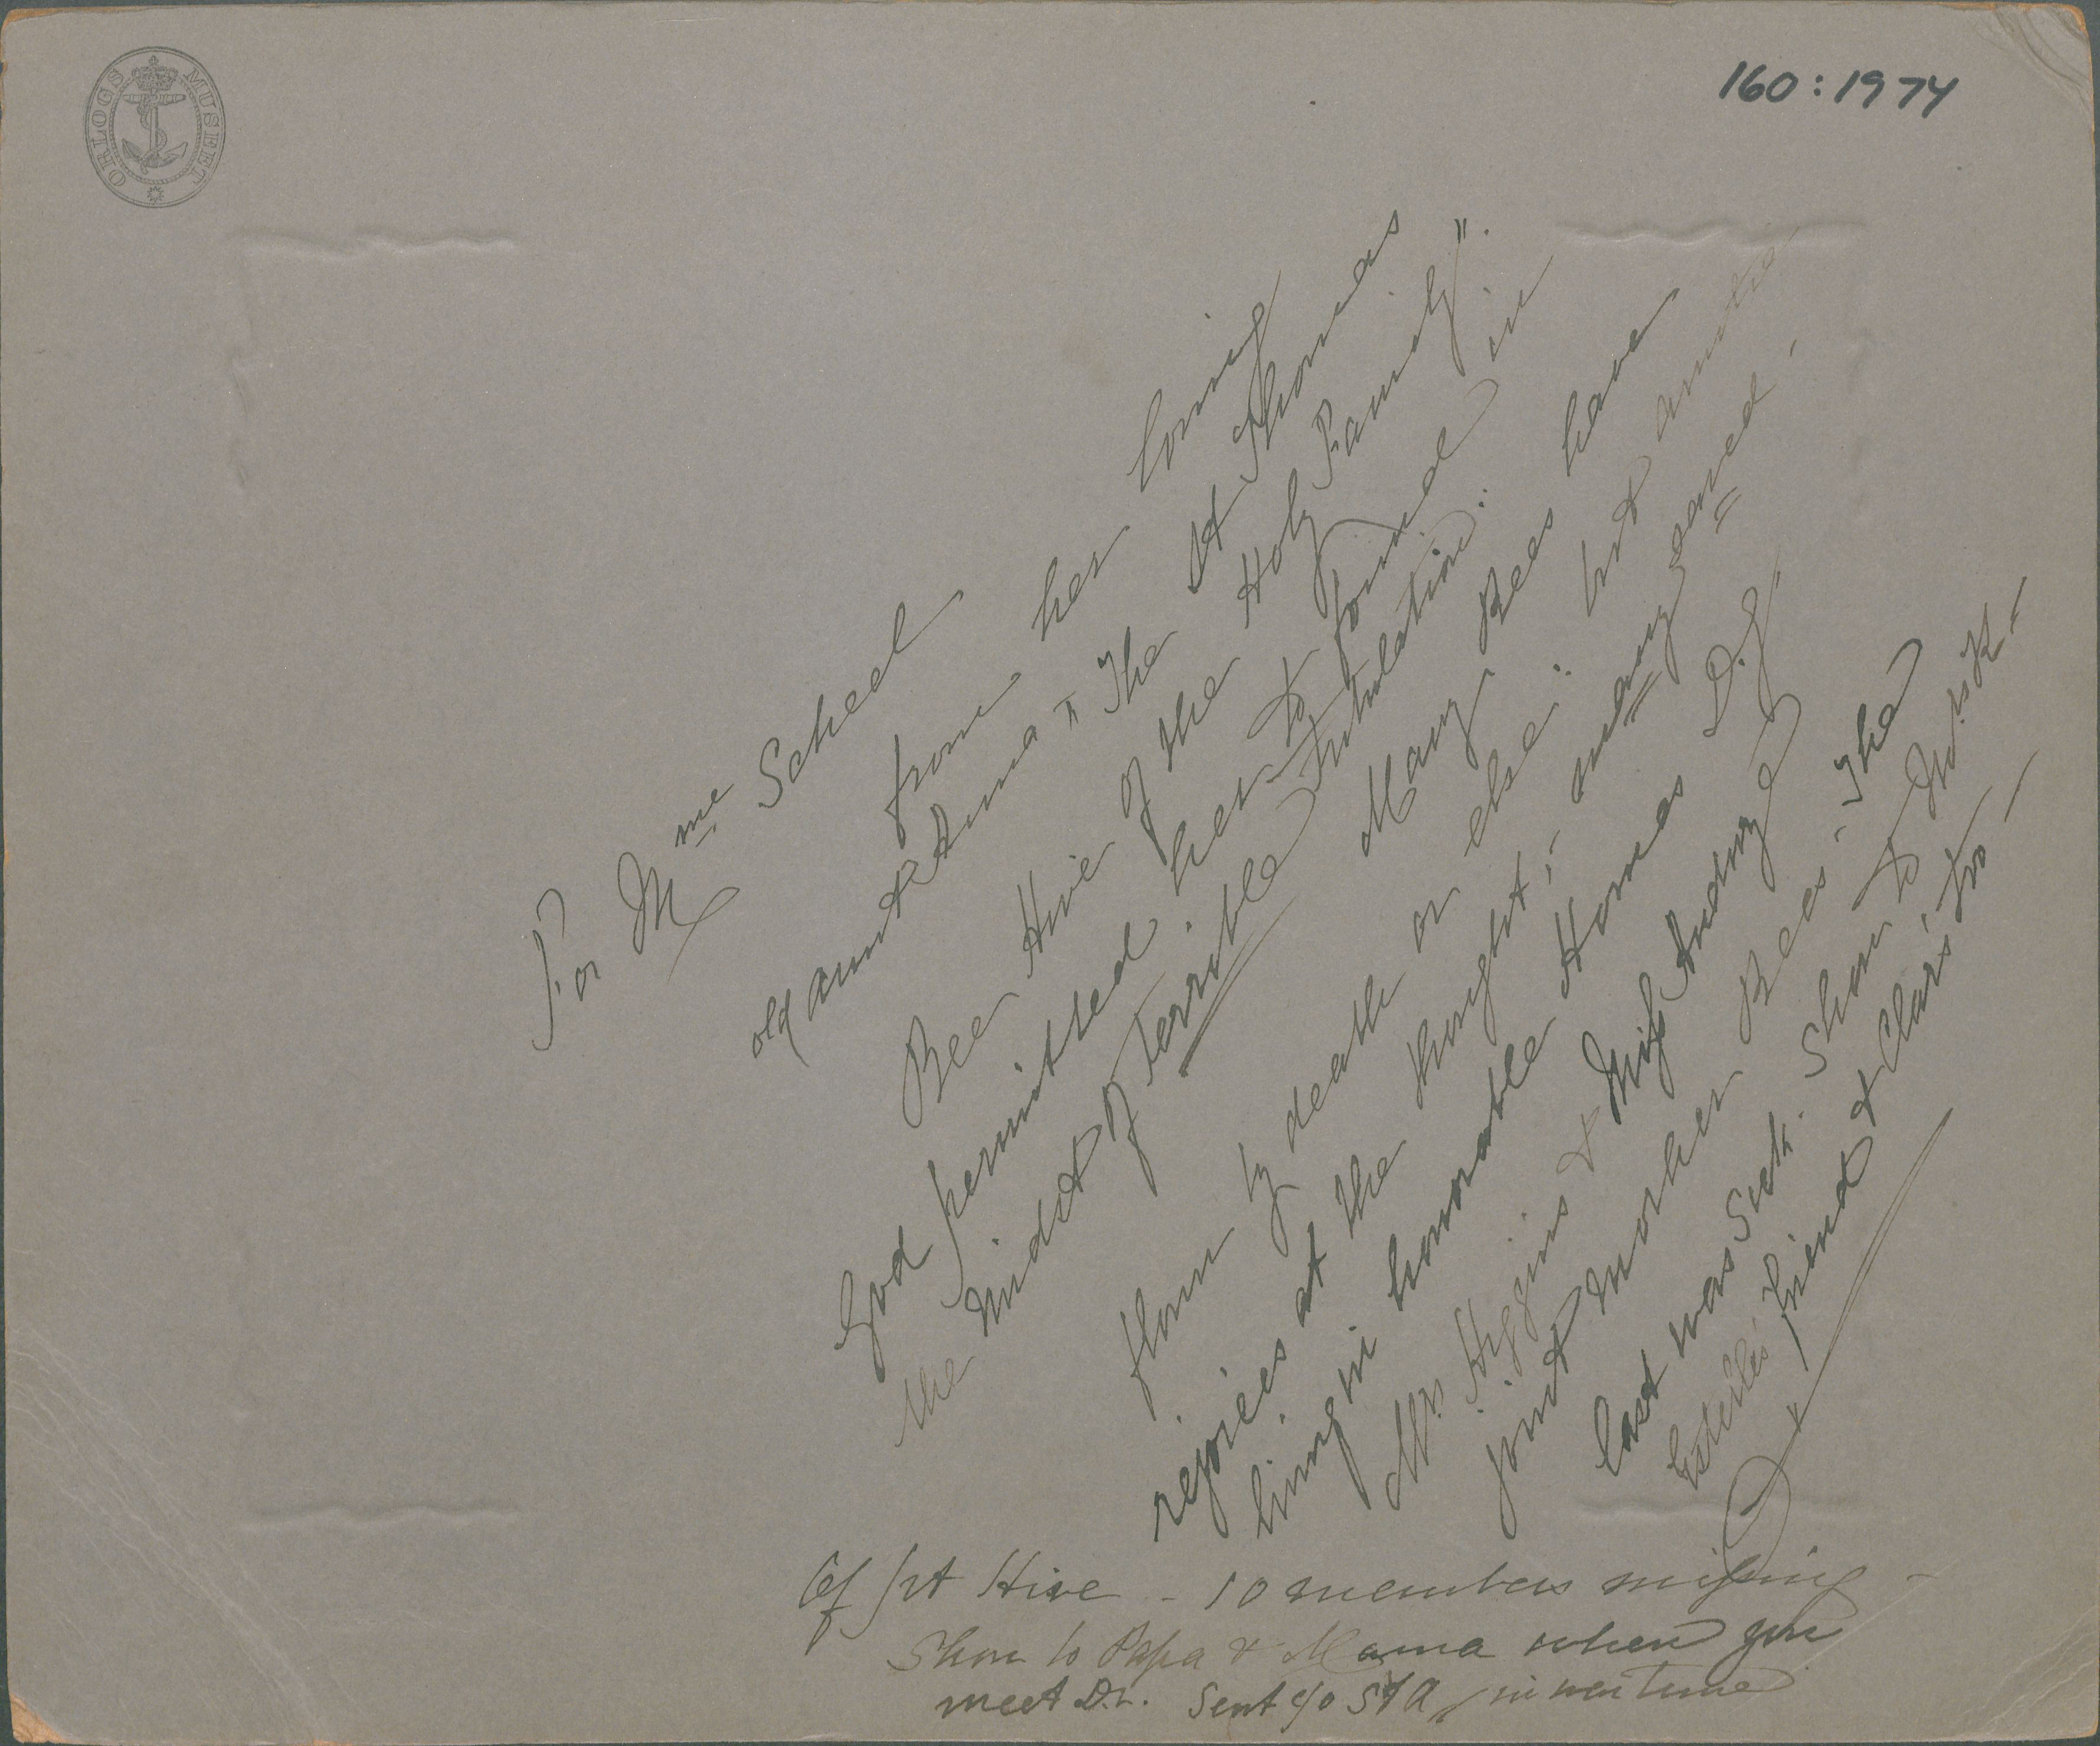 ORLOGS MUSEET
160:1974
For Mme Scheel
from her loving
old aunt Anna "The St Thomas
Bee Hive of the Holy Family".
God permitted her to found in
the midst of terrible tribulation:
Many Bees have
flown by death or else: but auntie
rejoices at the thought; many saved
living in honorable Homes D.G.
Mr. Higgins & Miss Audrey
joint worker Bees - The
last was Sick. Show to
Estelle's friend & Claris too -
Of 1st Hive - 10 members missing -
Show to Papa & Mama when you
meet D.V. Sent c/o St A in war time